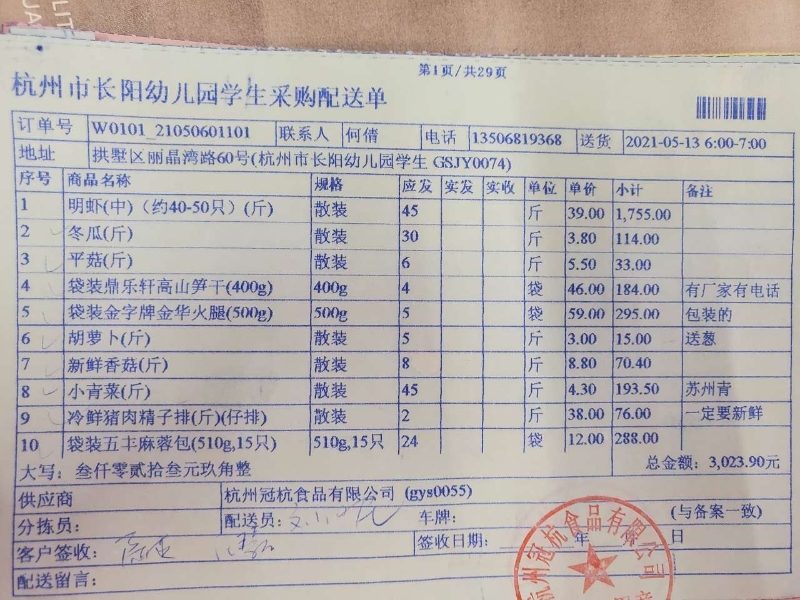 第1页/共29页
杭州市长阳幼儿园学生采购配送单
订单号 W0101_21050601101 联系人 何倩 电话 13506819368 送货 2021-05-13 6:00-7:00
地址 拱墅区丽晶湾路60号(杭州市长阳幼儿园学生 GSJY0074)
序号 商品名称 规格 应发 实发 实收 单位 单价 小计 备注
1 明虾(中)（约40-50只）(斤) 散装 45 斤 39.00 1,755.00
2 冬瓜(斤) 散装 30 斤 3.80 114.00
3 平菇(斤) 散装 6 斤 5.50 33.00
4 袋装鼎乐轩高山笋干(400g) 400g 4 袋 46.00 184.00 有厂家有电话
5 袋装金字牌金华火腿(500g) 500g 5 袋 59.00 295.00 包装的
6 胡萝卜(斤) 散装 5 斤 3.00 15.00 送葱
7 新鲜香菇(斤) 散装 8 斤 8.80 70.40
8 小青菜(斤) 散装 45 斤 4.30 193.50 苏州青
9 冷鲜猪肉精子排(斤)(仔排) 散装 2 斤 38.00 76.00 一定要新鲜
10 袋装五丰麻蓉包(510g,15只) 510g,15只 24 袋 12.00 288.00
大写: 叁仟零贰拾叁元玖角整 总金额: 3,023.90元
供应商 杭州冠杭食品有限公司 (gys0055)
分拣员: 配送员: 车牌: (与备案一致)
客户签收: 签收日期: 年 月 日
配送留言:
杭州冠杭食品有限公司